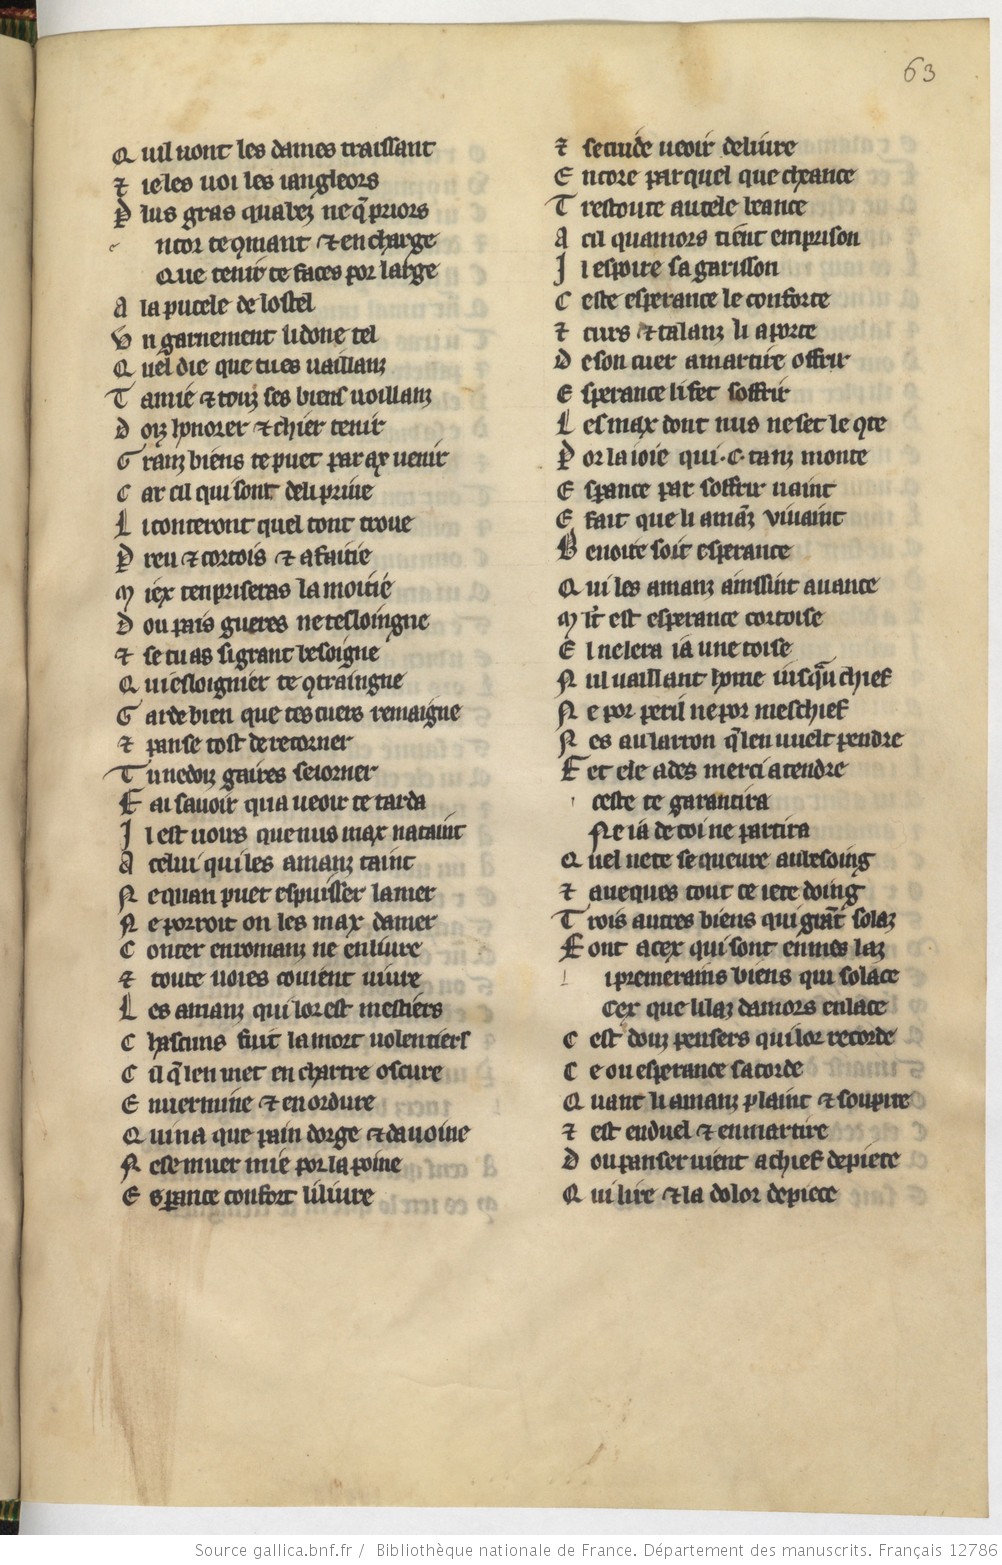 63
Q uil uont les dames traissant
⁊ ie les uoi les iangleors
P lus gras quabez ne q̃ priors
e ncor te ꝯmant ⁊ en charge
Que tenir te faces por large
A la pucele de lostel
V n garnement li done tel
Q uel die que tu es uaillanz
T amie ⁊ touz ses biens uoillanz
D oiz honorer ⁊ chier tenir
G ranz biens te puet par ax uenir
C ar cil qui sont deli priue
L i conteront quel tont troue
P reu ⁊ cortois ⁊ afaitie
M iex tenpriseras la moitie
D ou pais gueres ne tesloingne
⁊ se tu as si grant besoigne
Q ui esloignier te ꝯtraingne
G arde bien que tes cuers remaigne
⁊ panse tost de retorner
T u ne doiz gaires seiorner
F ai sauoir qua ueoir te tarda
I l est uoirs que nus max nataint
A celui qui les amanz taint
N e quan puet espuisser la mer
N e porroit on les max damer
C onter en romanz ne en liure
⁊ toute uoies couient uiure
L es amanz qui lor est mestiers
C hascuns fuit la mort uolentiers
C il q̃ len met en chartre oscure
E n uermine ⁊ en ordure
Q ui na que pain dorge ⁊ dauoine
N e se muer mie por la poine
E sꝑance confort li liure
⁊ se cuide ueoir deliure
E ncore par quel que cheance
T restoute autele beance
A cil quamors tient en prison
I l espoire sa garison
C este esperance le conforte
⁊ cuers ⁊ talanz li aporte
D e son cuer a martire offrir
E sperance li fet soffrir
L es max dont nus ne set le ꝯte
P or la ioie qui .c. tanz monte
E sꝑance par soffrir uaint
E fait que li amãz viuaint
B enoite soit esperance
Q ui les amanz ainssint auance
M lt̃ est esperance cortoise
E l ne lera ia une toise
N ul uaillant home iusq̃u chief
N e por peril ne por meschief
N es au larron q̃ len uuelt pendre
F et ele ades merci atendre
ceste te garantira
Ne ia de toi ne partira
Q uel ne te sequeure au besoing
⁊ aueques tout ce iete doing
T rois autres biens qui grãt solaz
F ont a cex qui sont en mes laz
l i premerains biens qui solace
Cex que li laz damors enlace
C est douz pensers qui lor recorde
C e ou esperance sacorde
Q uant li amanz plaint ⁊ soupire
⁊ est en duel ⁊ en martire
D ou panser uient a chief de piece
Q ui lire ⁊ la dolor depiece
Source gallica.bnf.fr / Bibliothèque nationale de France. Département des manuscrits. Français 12786